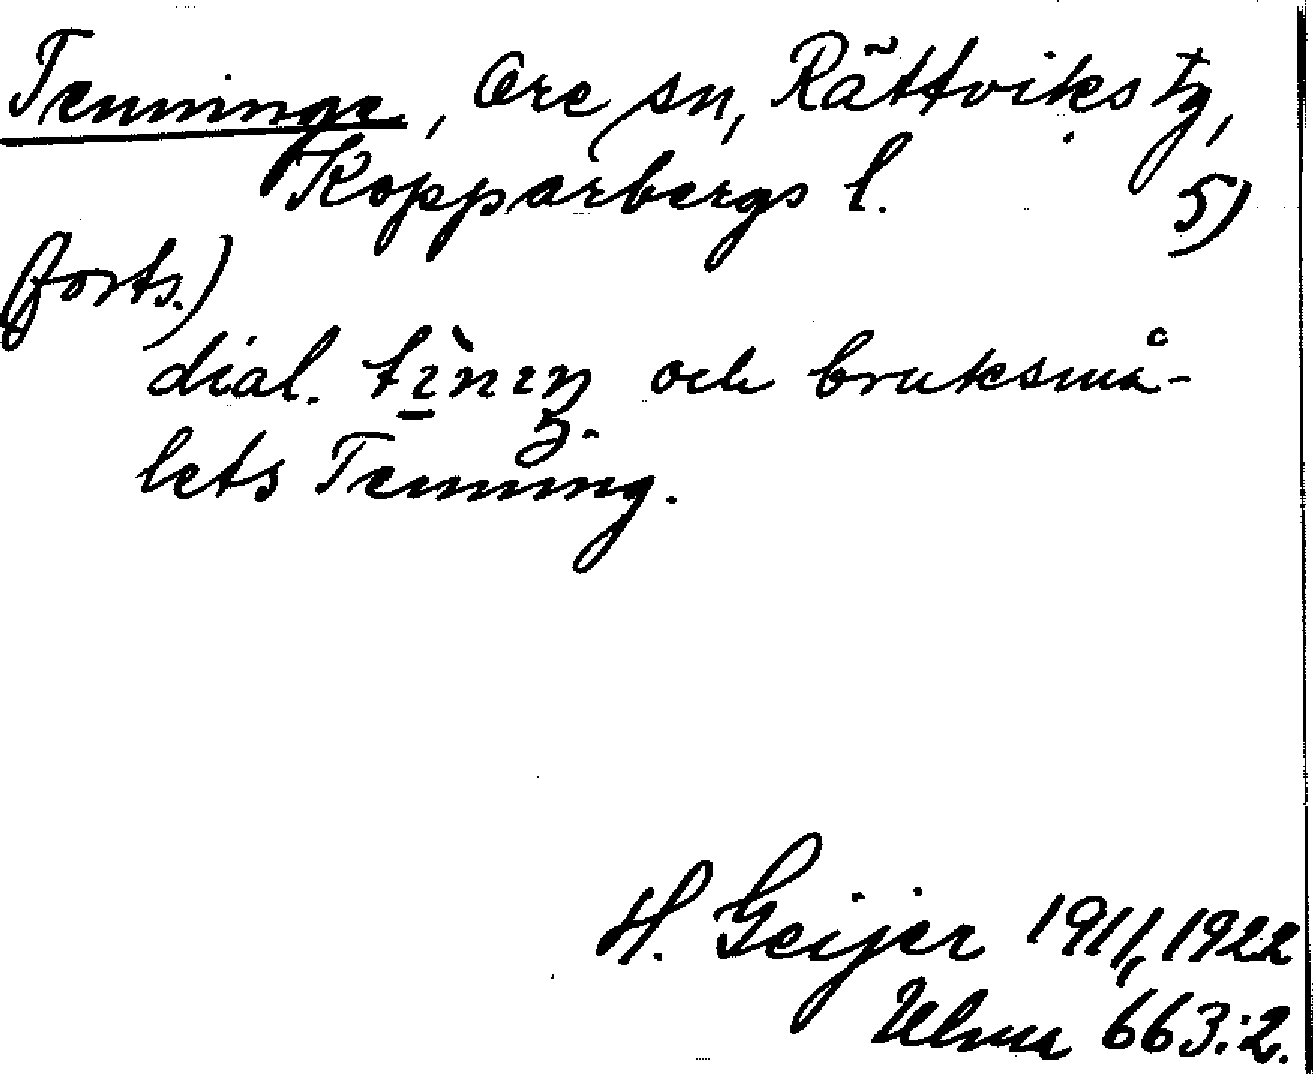 Tenninge, Ore sn, Rättviks tg,
Kopparbergs l. 5)
forts.)
dial. tìniŋ och bruksmå-
lets Tenning.
H. Geijer 1911, 1922
Ulma 663:2.